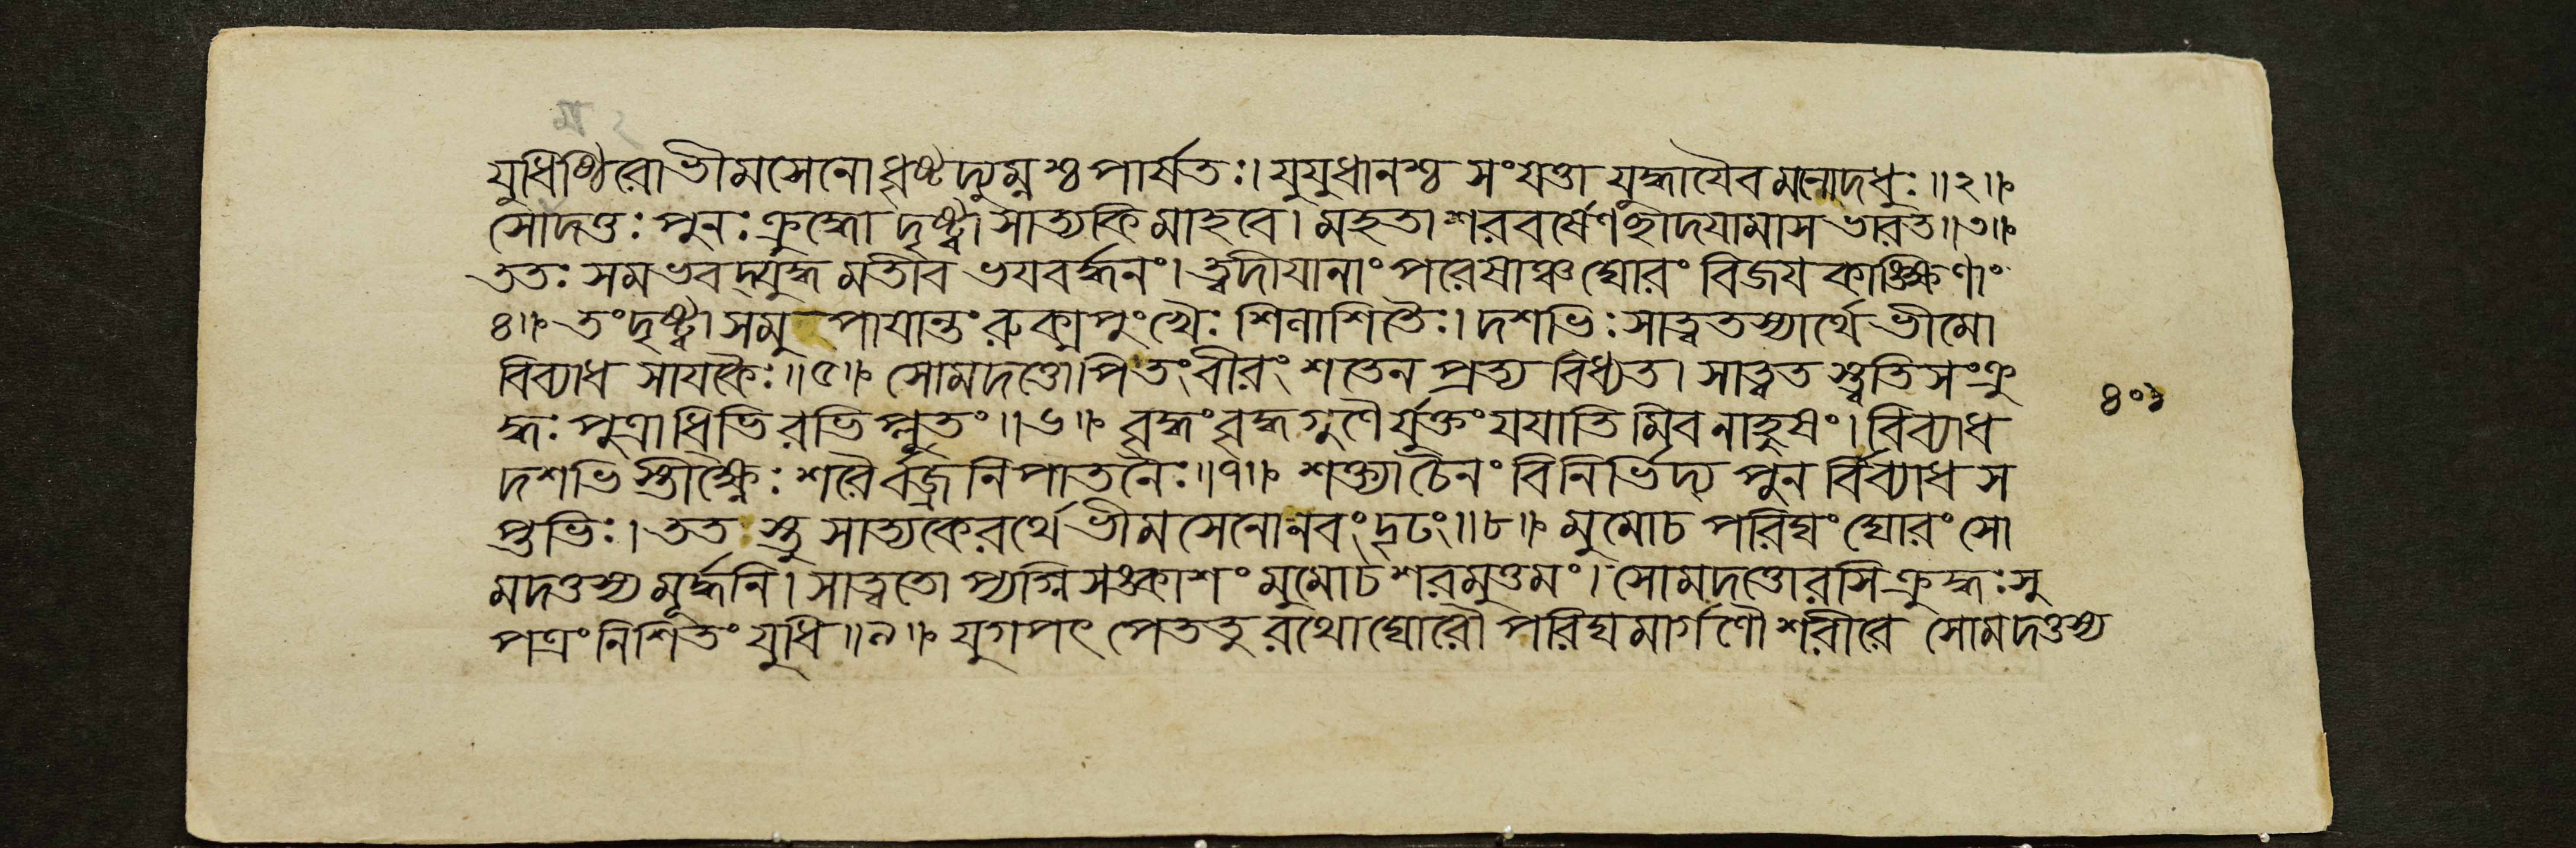 যুধিষ্ঠিরো ভীমসেনো ধৃষ্টদ্যুম্নশ্চ পার্ষতঃ। যুযুধানশ্চ সংযত্তা যুদ্ধাযৈব মনোদধুঃ॥২॥
সোদত্তঃ পুনঃ ক্রুদ্ধো দৃষ্ট্বা সাত্যকিমাহবে। মহতা শরবর্ষেণ ছাদযামাস ভারত॥৩॥
ততঃ সমভবদ্যুদ্ধমতীব ভযবর্দ্ধনং। ত্বদীযানাং পরেষাঞ্চ ঘোরং বিজযকাঙ্ক্ষিণাং
৪॥ তং দৃষ্ট্বা সমুপাযান্তং রুক্মপুংখৈঃ শিলাশিতৈঃ। দশভিঃ সাত্বতস্যার্থে ভীমো
বিব্যাধ সাযকৈঃ॥৫॥ সোমদত্তোপি তং বীরং শতেন প্রত্যবিধ্যত। সাত্বতস্ত্বতিসংক্রু
দ্ধঃ পুত্রাধিভিরভিপ্লুতং॥৬॥ বৃদ্ধং বৃদ্ধগুণৈর্যুক্তং যযাতিমিব নাহুষং। বিব্যাধ
দশভিস্তীক্ষ্ণৈঃ শরৈর্বজ্রনিপাতনৈঃ॥৭॥ শক্ত্যা চৈনং বিনির্ভিদ্য পুনর্বিব্যাধ স
প্তভিঃ। ততস্তু সাত্যকেরর্থে ভীমসেনো নবং দৃঢং॥৮॥ মুমোচ পরিঘং ঘোরং সো
মদত্তস্য মূর্দ্ধনি। সাত্বতোপ্যগ্নিসঙ্কাশং মুমোচ শরমুত্তমং। সোমদত্তোরসি ক্রুদ্ধঃ সু
পত্রং নিশিতং যুধি॥৯॥ যুগপৎ পেততুরথো ঘোরৌ পরিঘমার্গণৌ শরীরে সোমদত্তস্য